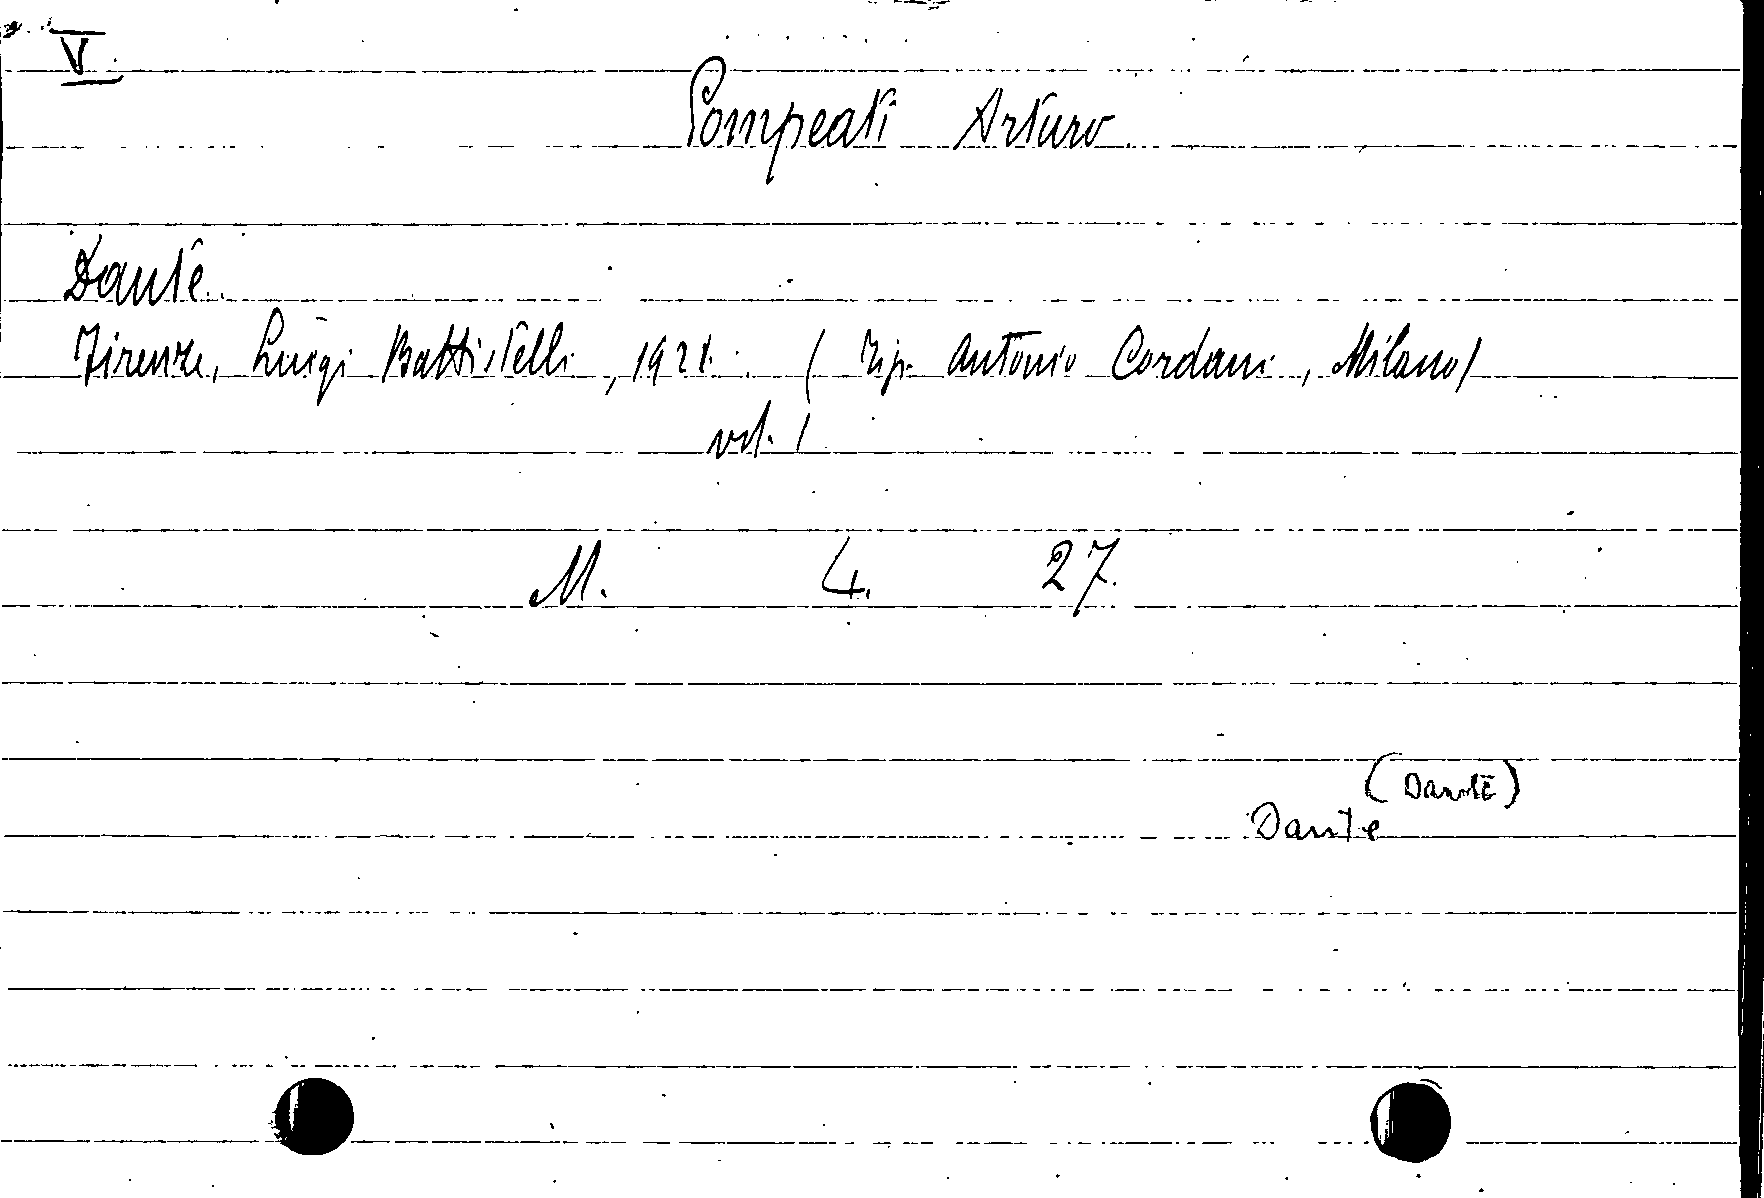 V
Pompeati Arturo
Dante
Firenze, Luigi Battistelli, 1921. (Tip. Antonio Cordani, Milano)
vol. 1
M. 4. 27.
(Dante)
Dante